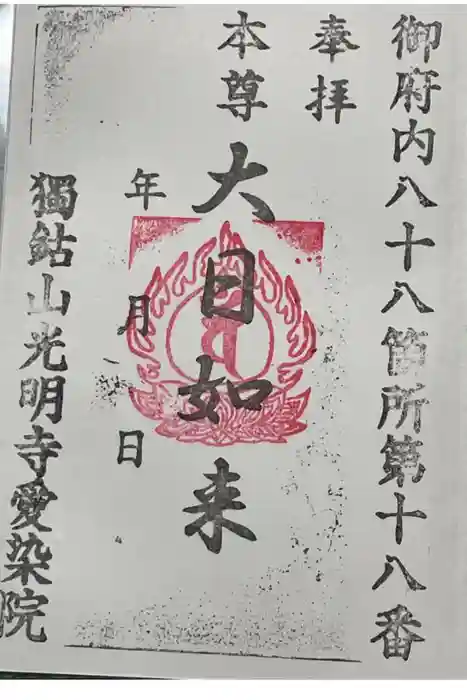 御府内八十八箇所第十八番
奉拝
本尊
大日如来
年月日
獨鈷山光明寺愛染院